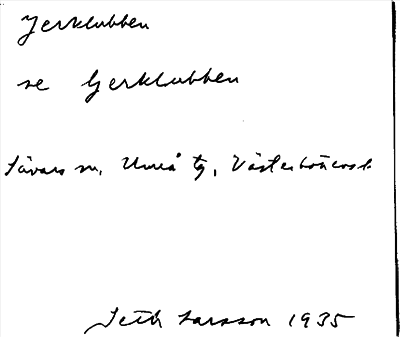 Jerklubben
se Gerklubben
Sävars sn, Umeå tg, Västerbottens l.
Seth Larsson 1935